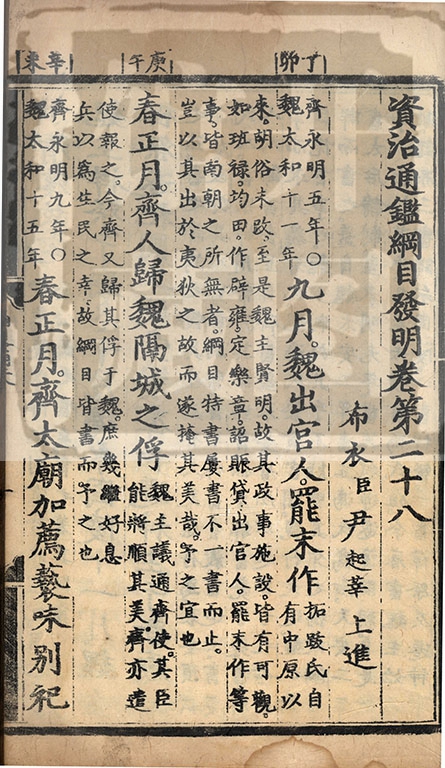 資治通鑑綱目發明卷第二十八
布衣臣尹起莘上進
丁卯
齊永明五年○
魏太和十一年
九月。魏出宫人。罷末作
拓跋氏自
有中原以
來。胡俗未改。至是魏主賢明。故其政事施設。皆有可觀。
如班禄。均田。作辟雍。定樂章。詔賑貸。出宫人。罷末作等
事。皆南朝之所無者。綱目特書屢書不一書而止。
豈以其出於夷狄之故而遂掩其美哉。予之宜也
庚午
春正月。齊人歸魏隔城之俘
魏主議通齊使。其臣
能將順其美。齊亦遣
使報之。今齊又歸其俘于魏。庶幾繼好息
兵以爲生民之幸。故綱目皆書而予之也
辛未
齊永明九年○
魏太和十五年
春正月。齊太廟加薦褻味别祀